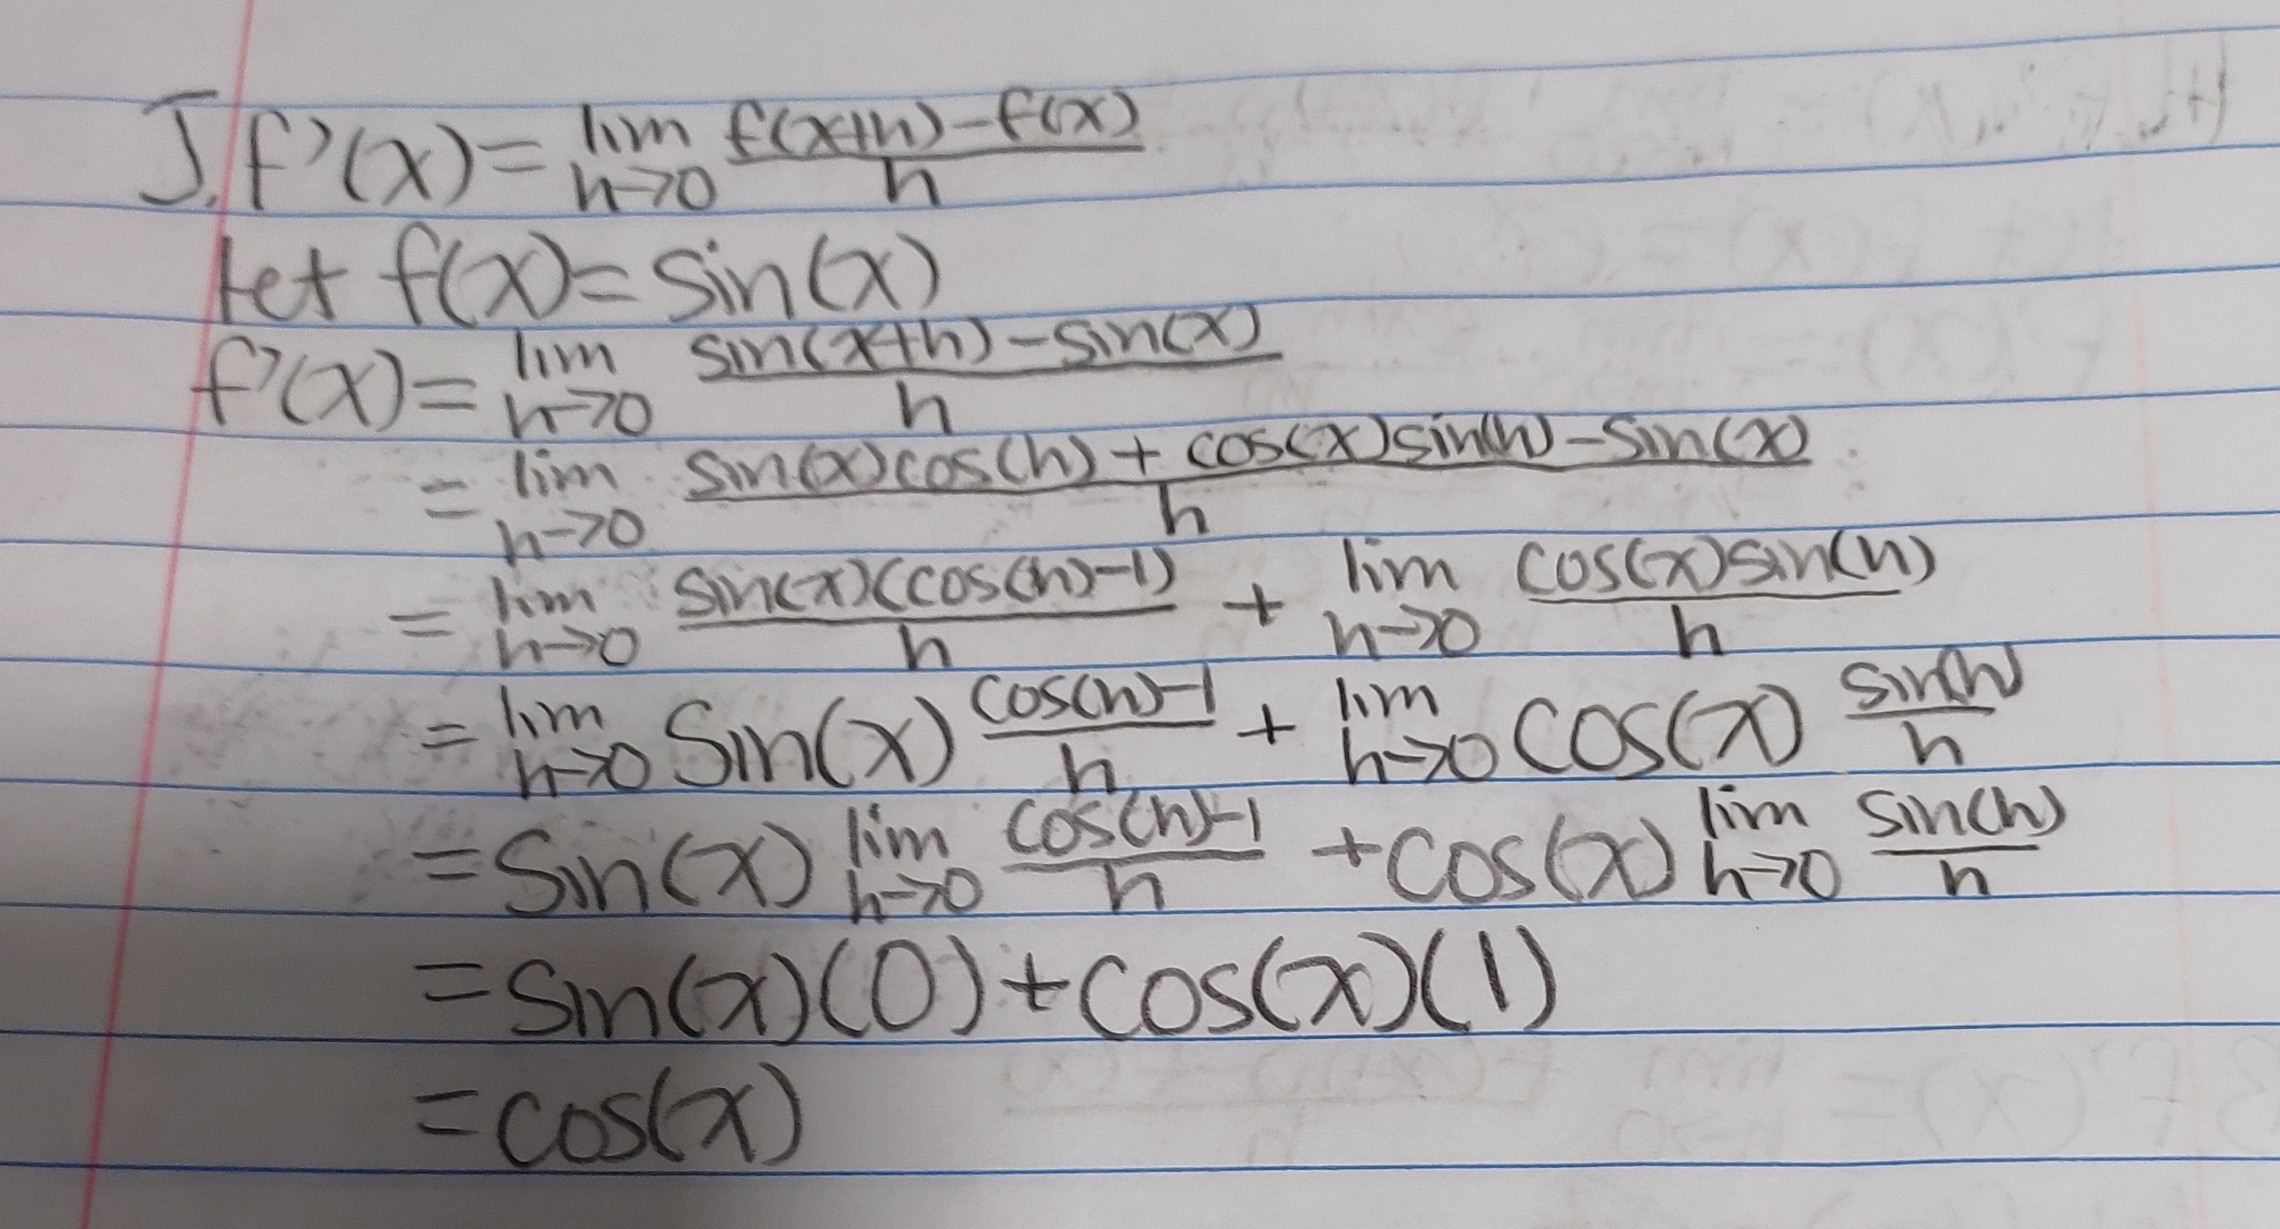 J. f'(x) = lim h→0 f(x+h)-f(x) / h
let f(x) = sin(x)
f'(x) = lim h→0 sin(x+h)-sin(x) / h
= lim h→0 sin(x)cos(h) + cos(x)sin(h)-sin(x) / h
= lim h→0 sin(x)(cos(h)-1) / h + lim h→0 cos(x)sin(h) / h
= lim h→0 sin(x) cos(h)-1 / h + lim h→0 cos(x) sin(h) / h
= sin(x) lim h→0 cos(h)-1 / h + cos(x) lim h→0 sin(h) / h
= sin(x)(0) + cos(x)(1)
= cos(x)